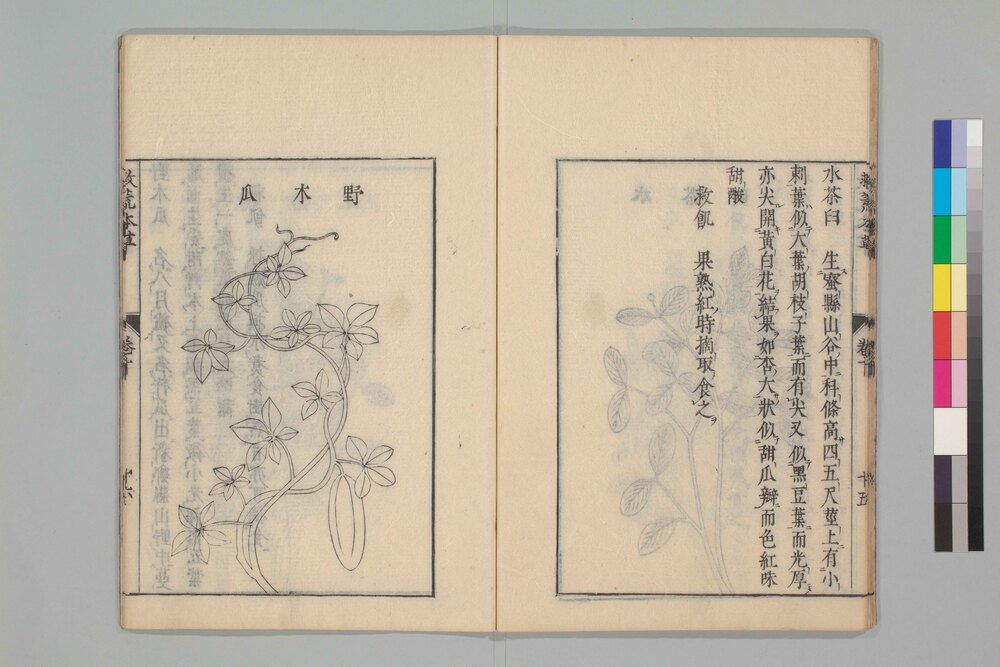 水茶臼　生密縣山谷中科條高四五尺莖上有小
刺葉似大葉胡枝子葉而有尖又似黑豆葉而光厚
亦尖開黃白花結果如杏大狀似甜瓜瓣而色紅味
甜酸
救飢　果熟紅時摘取食之
十五
野木瓜
救荒本草
卷十